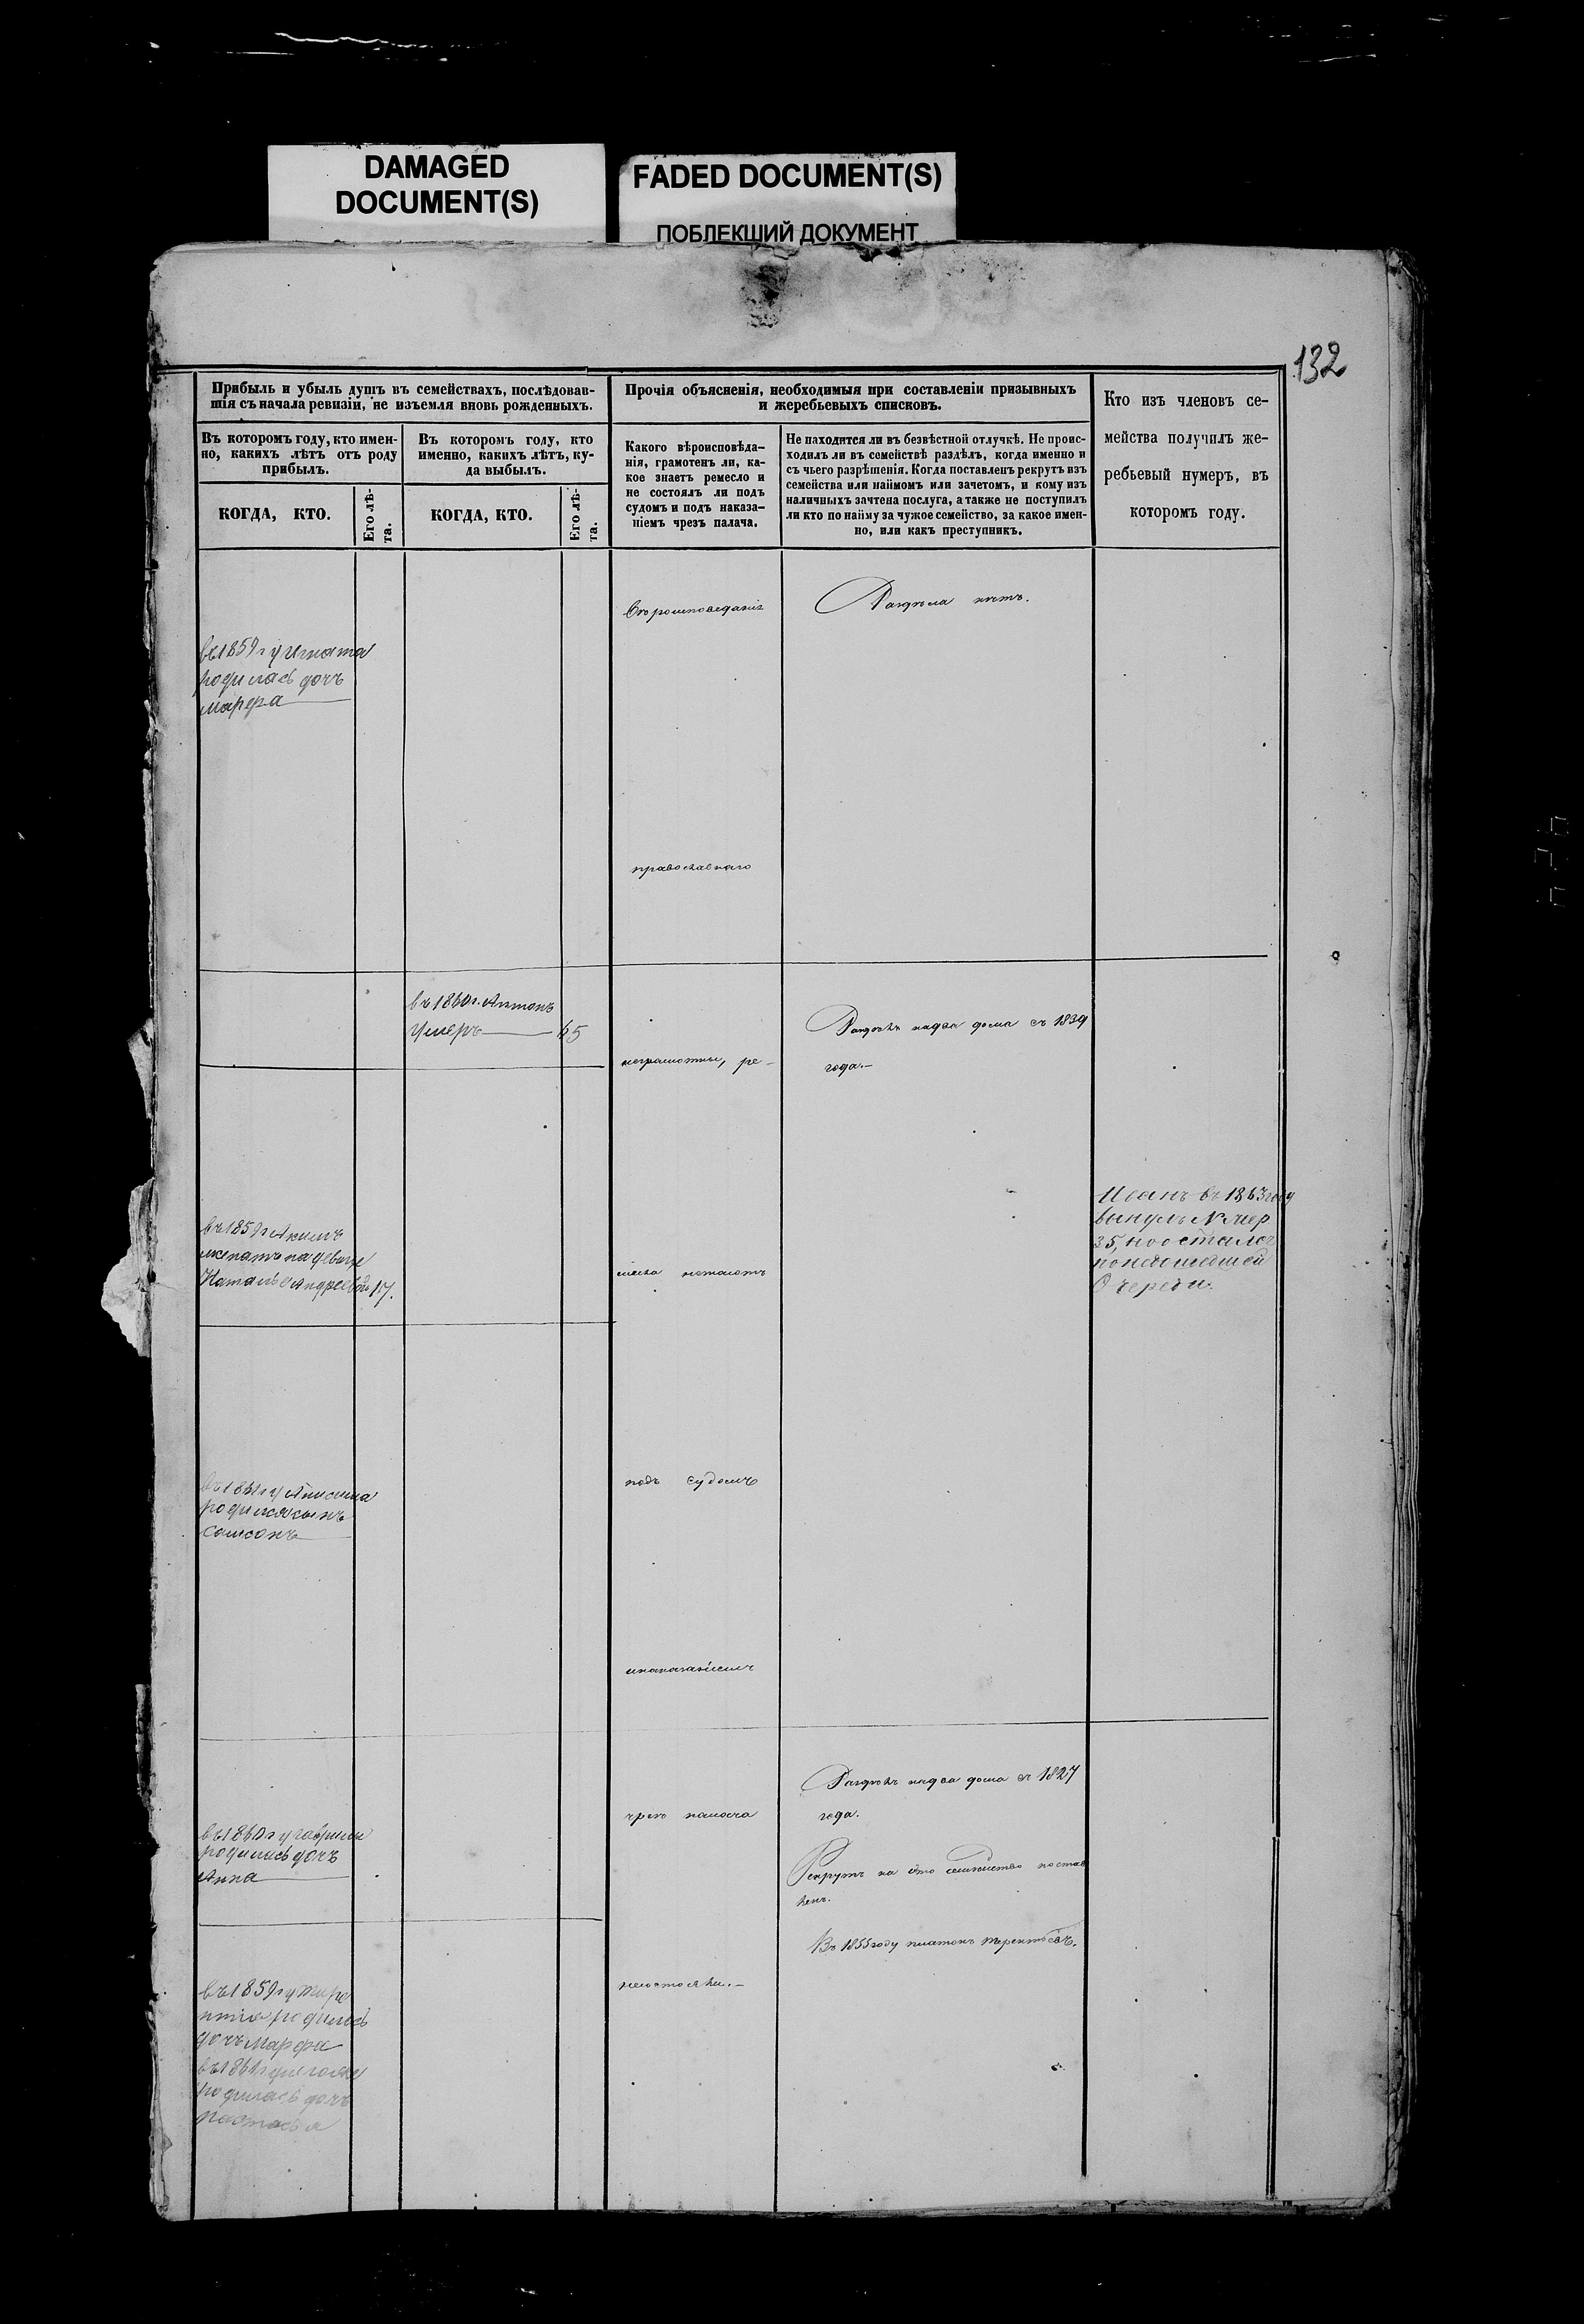 DAMAGED
DOCUMENT(S)
FADED DOCUMENT(S)
ПОБЛЕКШИЙ ДОКУМЕНТ
132
Прибыль и убыль душъ въ семействахъ, послѣдовав-
шія съ начала ревизіи, не изъемля вновь рожденныхъ.
Въ которомъ году, кто имен-
но, какихъ лѣтъ отъ роду
прибылъ.
КОГДА, КТО.
Его лѣ-
та.
Въ которомъ году, кто
именно, какихъ лѣтъ, ку-
да выбылъ.
КОГДА, КТО.
Его лѣ-
та.
Прочія объясненія, необходимыя при составленіи призывныхъ
и жеребьевыхъ списковъ.
Какого вѣроисповѣда-
нія, грамотенъ ли, ка-
кое знаетъ ремесло и
не состоялъ ли подъ
судомъ и подъ наказа-
ніемъ чрезъ палача.
Не находится ли въ безвѣстной отлучкѣ. Не проис-
ходилъ ли въ семействѣ раздѣлъ, когда именно и
съ чьего разрѣшенія. Когда поставленъ рекрутъ изъ
семейства или наймомъ или зачетомъ, и кому изъ
наличныхъ зачтена послуга, а также не поступилъ
ли кто по найму за чужое семейство, за какое имен-
но, или какъ преступникъ.
Кто изъ членовъ се-
мейства получилъ же-
ребьевый нумеръ, въ
которомъ году.
Вѣроисповеданія
Раздѣла нѣтъ.
въ 1859 г у Игната
родилась дочь
марфа
православнаго
въ 1860 г. Антонъ
умеръ 65
неграмотны, ре-
Раздѣлъ надва дома съ 1839
года.-
Иванъ въ 1863 году
вынулъ № мер
35, но остался
понедошедшей
Очереди.
въ 1859 г Акимъ
женатъ на девице
Наталье Андреевой 17.
месла незнаютъ
въ 1861 г у Анисима
родился сынъ
Самсонъ
подъ судомъ
инаказаніемъ
Раздѣлъ надва дома съ 1827
года.
чрезъ палача
въ 1860 г у гаврилы
родилась дочь
Анна
Рекрутъ на это семейство постав
ленъ.
Въ 1855 году платонъ терентьевъ.
несостояли.-
въ 1859 г у Тере
нтия родилась
дочь Марфа
въ 1861 г у него же
родилась дочь
настасья